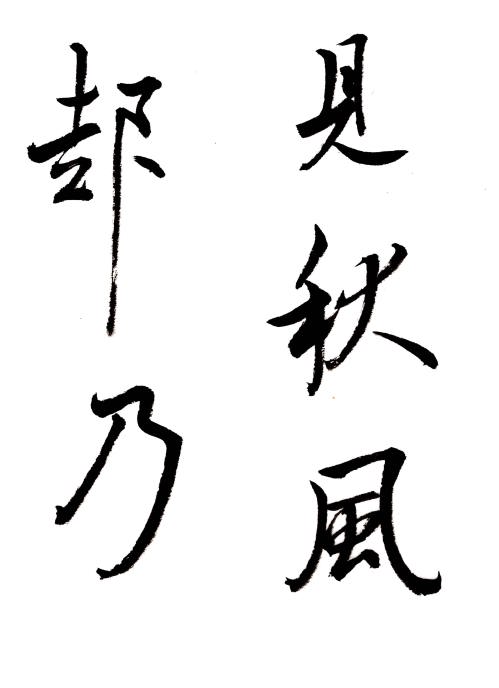 見秋風
却乃